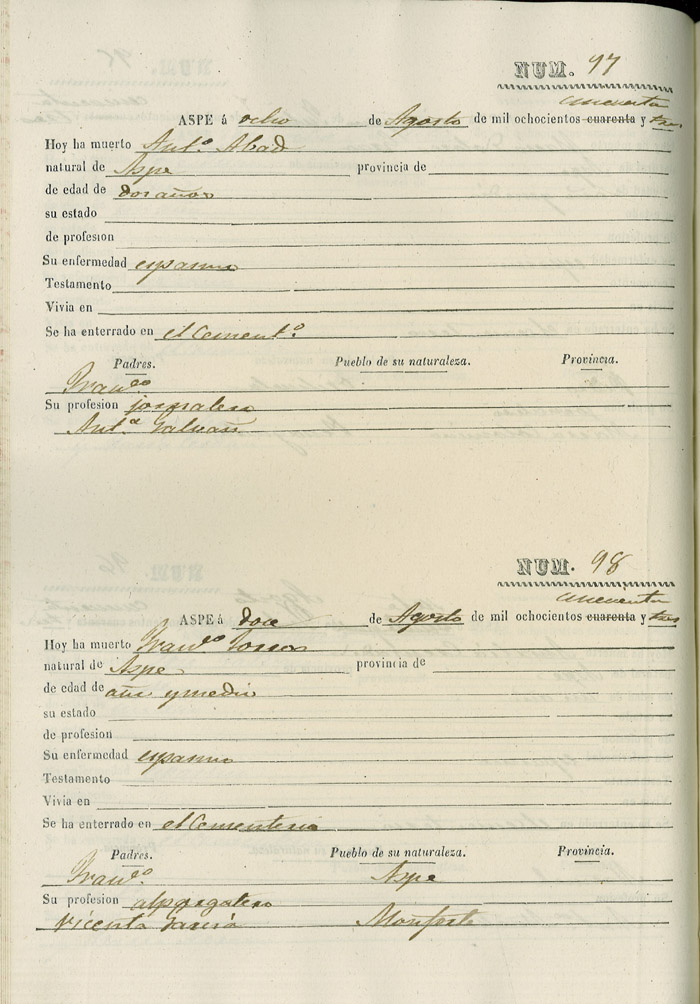 NUM. 97
cincuenta
ASPE á ocho de Agosto de mil ochocientos cuarenta y tres
Hoy ha muerto Ant.º Abad
natural de Aspe provincia de
de edad de dos años
su estado
de profesion
Su enfermedad espasmo
Testamento
Vivia en
Se ha enterrado en el Cement.º
Padres. Pueblo de su naturaleza. Provincia.
Fran.co
Su profesion jornalero
Ant.a Galvañ
NUM. 98
cincuenta
ASPE á doce de Agosto de mil ochocientos cuarenta y tres
Hoy ha muerto Fran.co
natural de Aspe provincia de
de edad de año y medio
su estado
de profesion
Su enfermedad espasmo
Testamento
Vivia en
Se ha enterrado en el Cementerio
Padres. Pueblo de su naturaleza. Provincia.
Fran.co Aspe
Su profesion alpargatero
Vicenta García Monforte